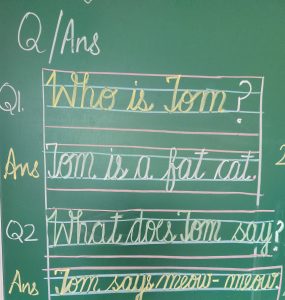 Q/Ans
Q1. Who is Tom?
Ans Tom is a fat cat.
Q2 What does Tom say?
Ans Tom says meow-meow.